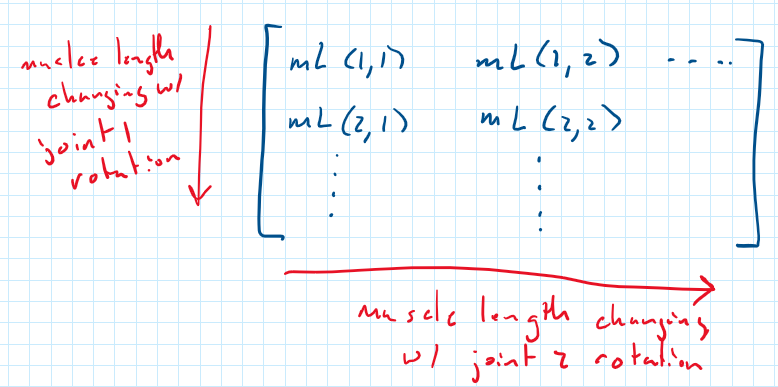 muscle length
changing w/
joint 1
rotation
mL (1,1) mL (1,2) ....
mL (2,1) mL (2,2)
muscle length changing
w/ joint 2 rotation